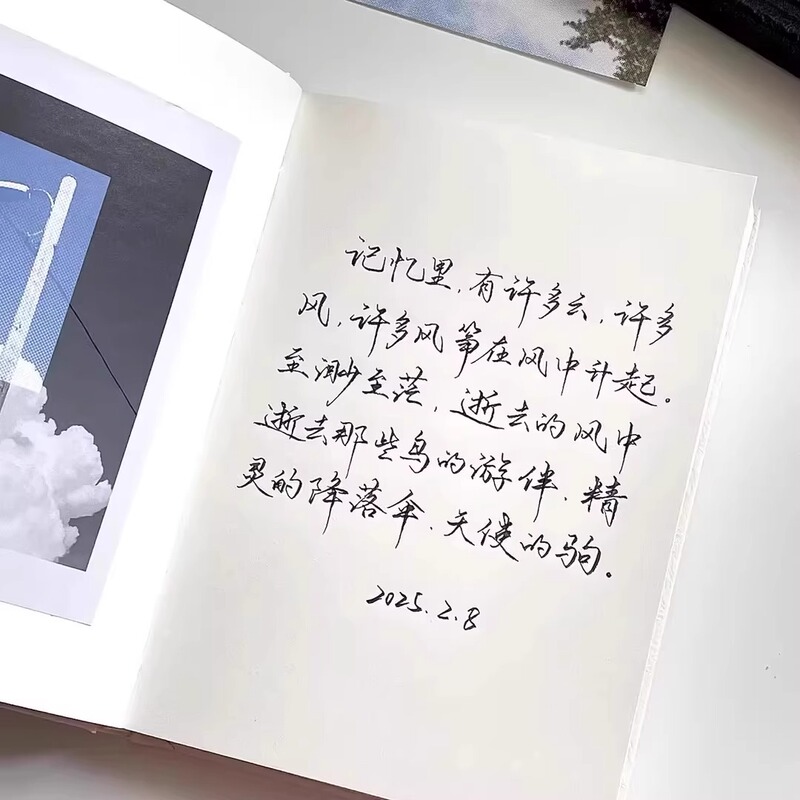 记忆里,有许多云,许多
风,许多风筝在风中升起。
至渺至茫,逝去的风中
逝去那些鸟的游伴、精
灵的降落伞、天使的驹。
2025.2.8